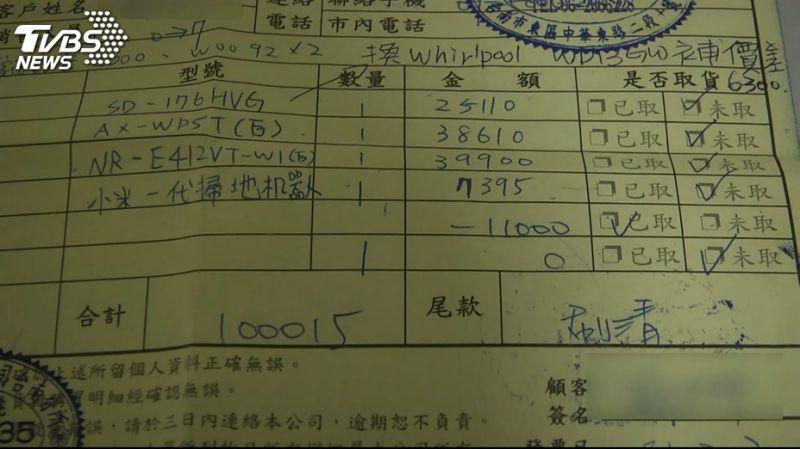 客戶姓名
聯絡手機
電話 市內電話
台南市東區中華東路二段
TVBS
NEWS
W0092×2 換 Whirlpool 價差
6300
型號 數量 金額 是否取貨
SD-176HVG 1 25110 □已取 ☑未取
AX-WP5T(白) 1 38610 □已取 ☑未取
NR-E412VT-W1(白) 1 39900 □已取 ☑未取
小米一代掃地机器人 1 7395 □已取 ☑未取
-11000 ☑已取 □未取
1 0 □已取 ☑未取
合計 100015 尾款 刷清
上述所留個人資料正確無誤。
明細經確認無誤。
誤，請於三日內連絡本公司，逾期恕不負責。
顧客
簽名
發票日
35